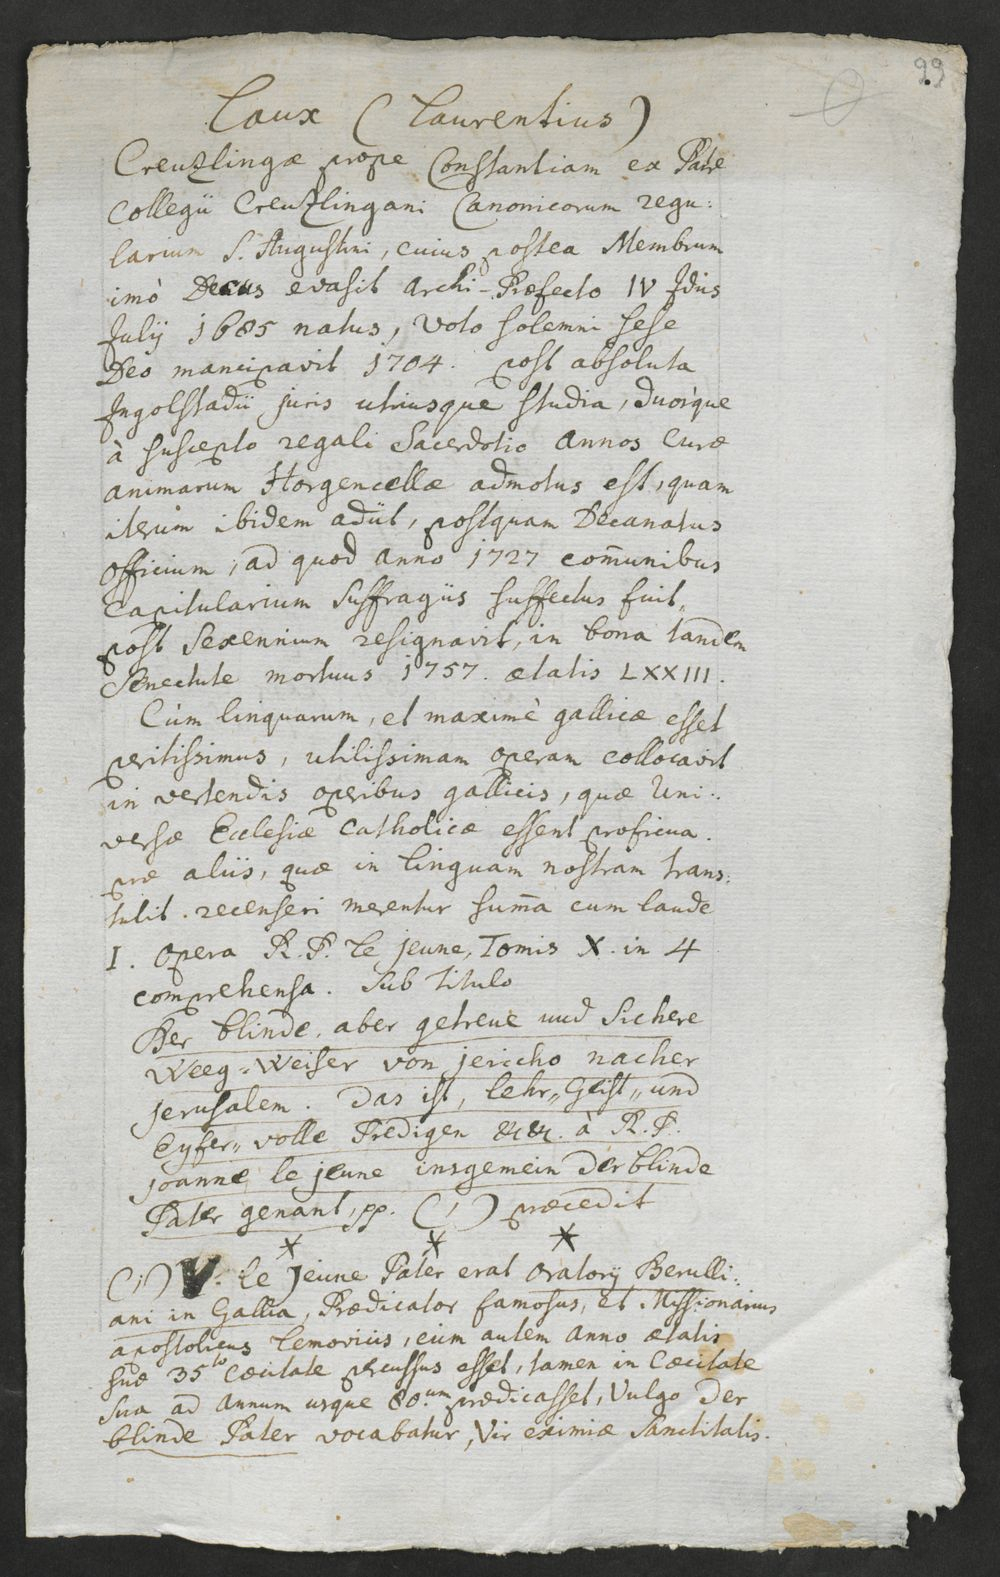 99
Laux (Laurentius)
Creuzlingæ prope Constantiam ex Patre
Collegii Creuzlingani Canonicorum regu:
larium S. Augustini, cuius postea Membrum
imò Decus evasit Archi-Præfecto IV Idus
Julij 1685 natus, voto solemni sese
Deo mancipavit 1704. post absoluta
Ingolstadii juris utriusque studia, duósque
à suscepto regali Sacerdotio annos Curæ
animarum Horgencellæ admotus est, quam
iterùm ibidem adiit, postquam Decanatus
officium, ad quod anno 1727 com̄unibus
Capitularium Suffragiis suffectus fuit,
post Sexennium resignavit, in bona tandem
Senectute mortuus 1757. ætatis LXXIII.
Cùm linguarum, et maximè gallicæ esset
peritissimus, utilissimam operam collocavit
in vertendis operibus gallicis, quæ Uni:
versæ Ecclesiæ Catholicæ essent proficua.
præ aliis, quæ in linguam nostram trans:
tulit. recenseri merentur sum̄a cum laude
I. Opera R.P. le jeune, Tomis X. in 4
comprehensa. Sub titulo
Der blinde, aber getreue und Sichere
Weeg-Weiser von jericho nacher
jerusalem. Das ist, lehr„Geist„und
Eyfer„volle Predigen &c&c. à R.P.
joanne le jeune insgemein der blinde
Pater genant, pp. (1) præcedit
* * *
(1) V. le Jeune Pater erat Oratorij Berulli:
ani in Gallia, Prædicator famosus, et Missionarius
apostolicus Lemovicis, cum autem Anno ætatis
suæ 35to Cæcitate percussus esset, tamen in Cæcitate
sua ad Annum usque 80.um prædicasset, Vulgo Der
blinde Pater vocabatur, Vir eximiæ Sanctitatis.